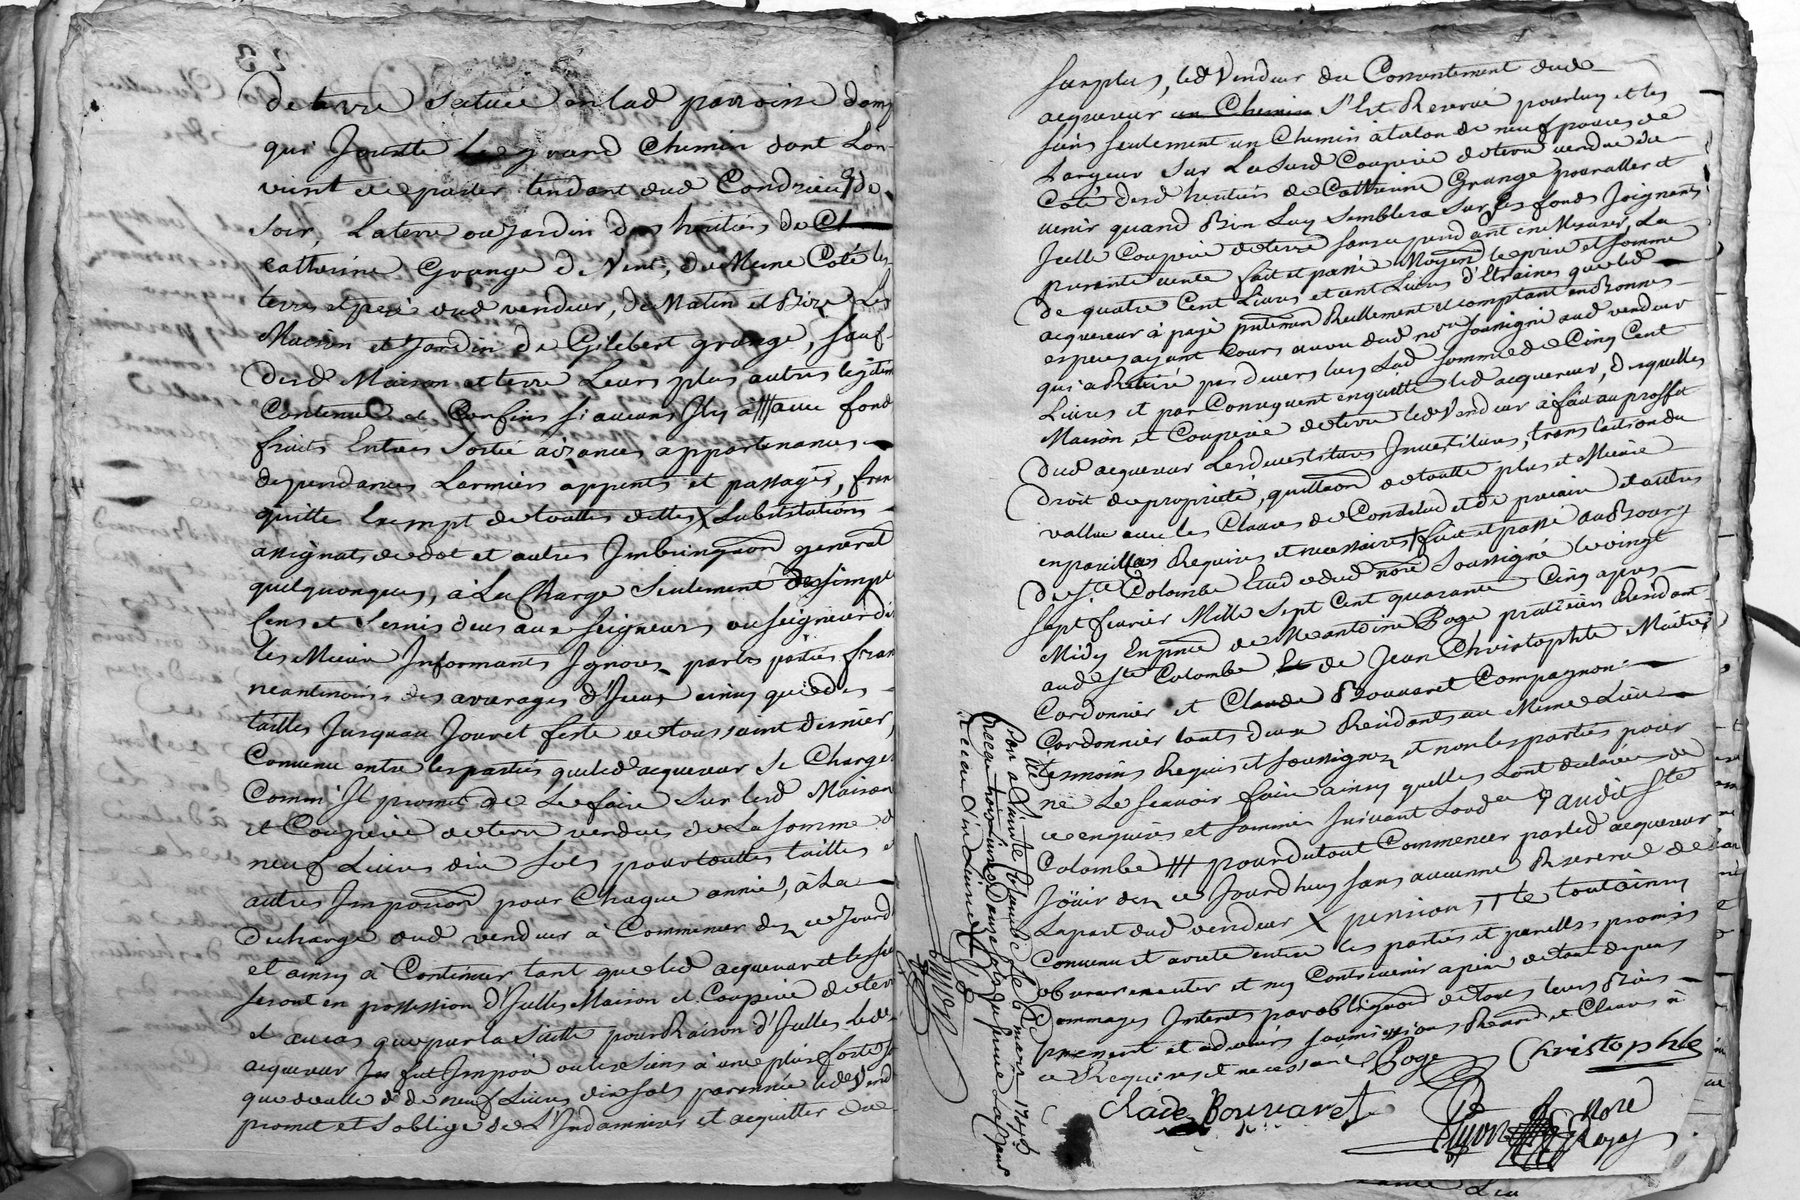 de terre scituée en lad parroisse dampuis
qui Jouxte Le grand Chemin dont Lon
vient de parler tendant aud Condrieu de
soir, Laterre ou Jardin des heritiers de
Catherine Grange de Vent, de Meme Coté les
terre et pred dud vendeur, de Matin et Bize Les
Maison et Jardin de Gilebert grange, sauf
Desd Maison et terre Leurs plus autres legitimes
Contenue et Confins si aucuns Il y à avec fond
fruits Entrees Sortie aizances appartenances
dependances Larmiers appents et passages, franc
quitte Exempt de touttes dettes Substitations
assignats de dot et autres Imbringaon general
quelquonques, à La Charge Seulement des simple
Cens et Servis deus aux Seigneurs ou Seigneur di
les Mieux Informants Ignorez par les parties franc
neantmoins des arrerages d'Iceux ainsy que des
tailles Jusquau Jour et feste de toussaint dernier,
Convenu entre les parties que led acquereur Se Charge
Comm'Il promet de Le faire Sur lesd Maison
et Couperie de terre vendues de La Somme de
neuf Livres dix Sols pour touttes tailles et
autres Impoñon pour Chaque année, à La
Decharge dud vendeur à Commencer dez ce Jourd
et ainsy à Continuer tant que led acquereur et les siens
seront en possession d'Icelles Maison et Couperie de terre
et au cas que par la Suitte pour Raison d'Icelles led
acquereur fut Imposé ou les siens à une plus forte so
que de celle de neuf Livres dix sols par année led Vend
promet et s'oblige de L'Indamniser et acquitter du
surplus, led Vendeur du Consentement dud
acquereur un Chemin S'Est Reservé pour luy et les
siens seulement un Chemin à talon de neuf pouces de
Largeur Sur La Susd Couperie de terre vendue du
Coté desd heritiers de Catherine Grange pour aller et
venir quand Bon Luy Semblera Sur Les fonds Joignants
Icelle Couperie de terre La
presente vente fait et passé Moyen le prix et somme
de quatre Cent Livres et cent Livres d'Etraines que led
acquereur à payé presentem Reellement et comptant en Bonnes
especes ayant Cours au vu dud nore soussigné aud vendeur
qui à Retiré par devers luy Lad Somme de Cinq Cent
Livres et par Consequent enquitte led acquereur, desquelles
Maison et Couperie de terre led Vendeur à fait au proffit
Dud acquereur Les devestitures Investitures, translation du
droit de propriété, quittaon de toutte plus et Mieuxe
vallue avec les Clauses de Constitud et de precaire et autres
en pareil Cas Requises et necessaires fait et passé au Bourg
de Ste Colombe Etude dud nore Soussigné le vingt
sept fevrier Mille Sept Cent quarante Cinq apres
Midy En pnce de Me antoine Boge praticien Rendant
aud Ste Colombe de Jean Christophle Maitre
Cordonnier et Claude Bouvaret Compagnon
Cordonnier touts deux Residants au Meme Lieu
temoins Requis et Soussignez et non les parties pour
ne Le Scavoir faire ainsy quelles Lont declarée de
ce enquises et sommées suivant Lorde audit Ste
Colombe pour du tout Commencer par led acquereur
Joüir dez ce Jourdhuy sans aucune Reserve de
Lapart dud vendeur pension Le tout ainsy
Convenu et areté entre les parties et par elles promis
observer executer et ny Contrevenir a peine de tous depens
Dommages Interets par obligaon de tous leurs Biens
presens et advenirs soumissions Renonc et Clauses à
ce Requises et necessaires Boge Christophle
Clade Bouvaret
Guyon Nore
Royal
Controllé
a Sainte Colombe Le 6 mars 1745
Reçu